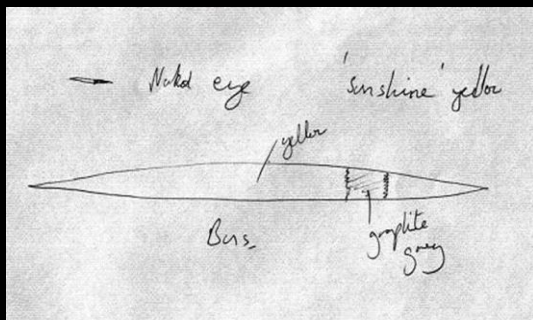 Naked eye 'sunshine' yellow
yellow
Bins.
graphite
grey